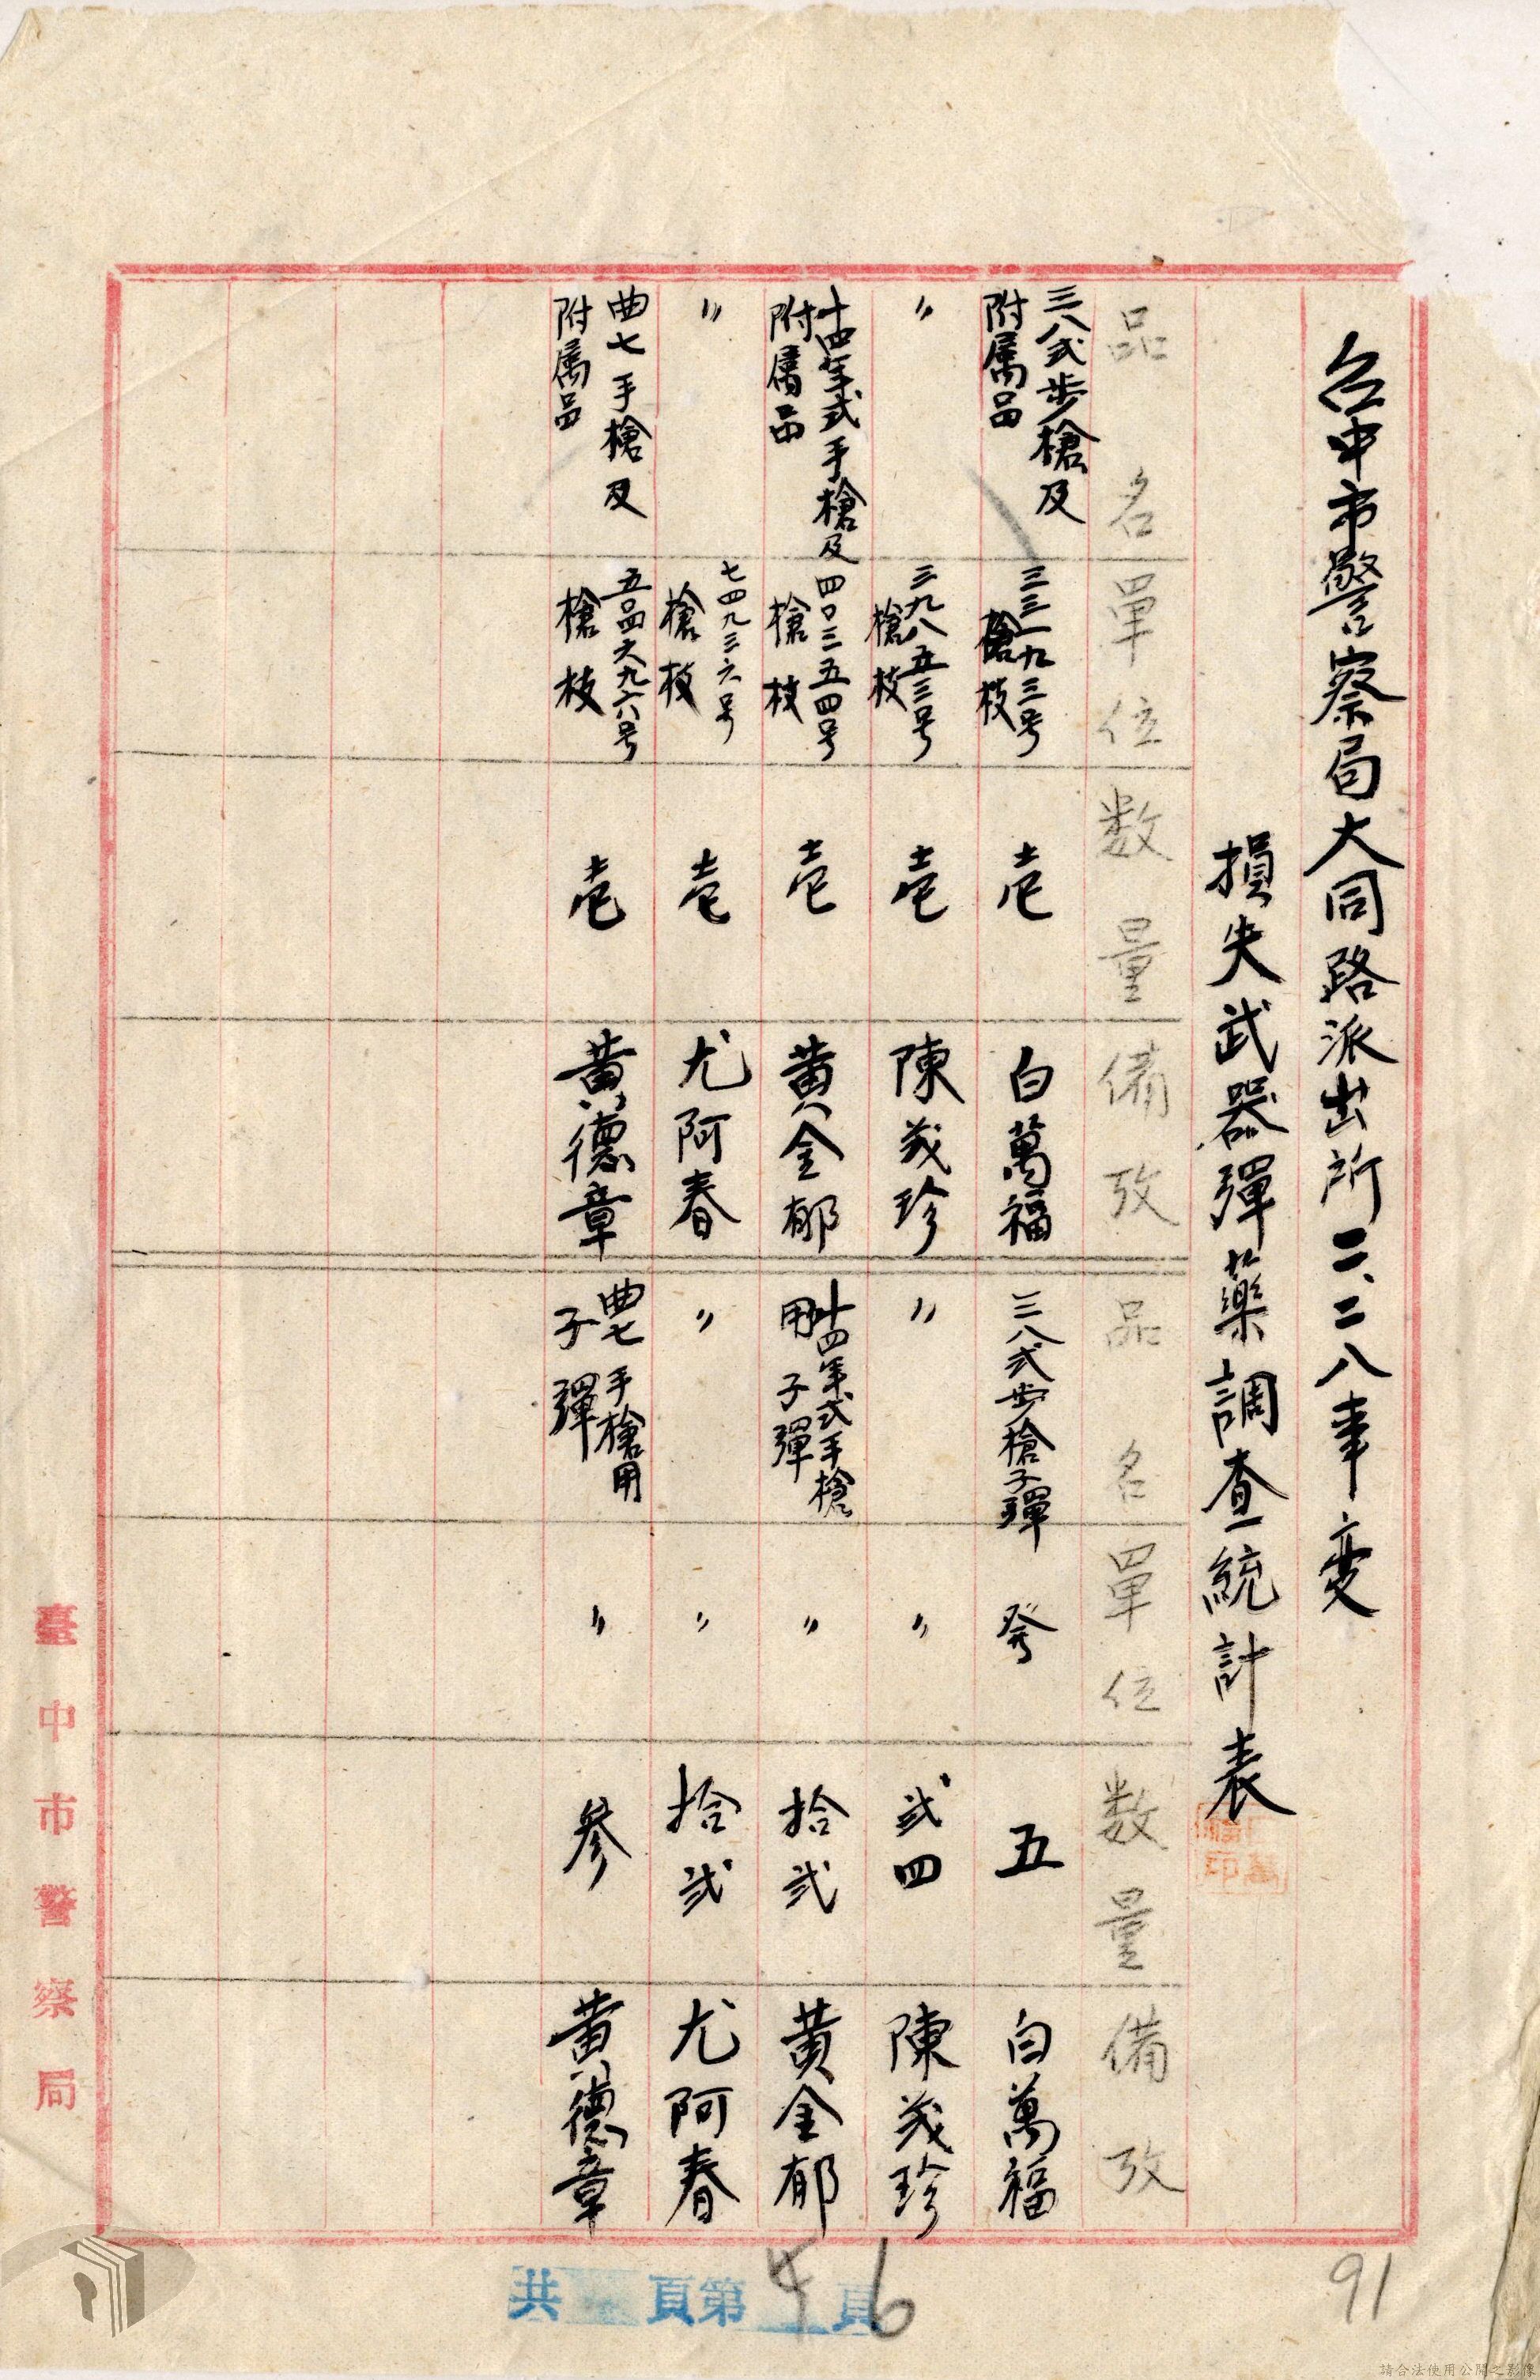 台中市警察局大同路派出所二、二八事変
損失武器彈薬調查統計表
品名 單位 数量 備攷 品名 單位 数量 備攷
三八式步槍及附属品 三三一九三号槍枝 壱 白萬福 三八式步槍子彈 発 五 白萬福
〃 三九八五三号槍枝 壱 陳茂珍 〃 〃 弍四 陳茂珍
十四年式手槍及附属品 四〇三五四号槍枝 壱 黄金郁 十四年式手槍用子彈 〃 拾弍 黄金郁
〃 七四九三六号槍枝 壱 尤阿春 〃 〃 拾弍 尤阿春
曲七手槍及附属品 号槍枝 壱 黄德章 曲七手槍用子彈 〃 参 黄德章
臺中市警察局
共 頁第 頁
6
91
請合法使用公開之影像